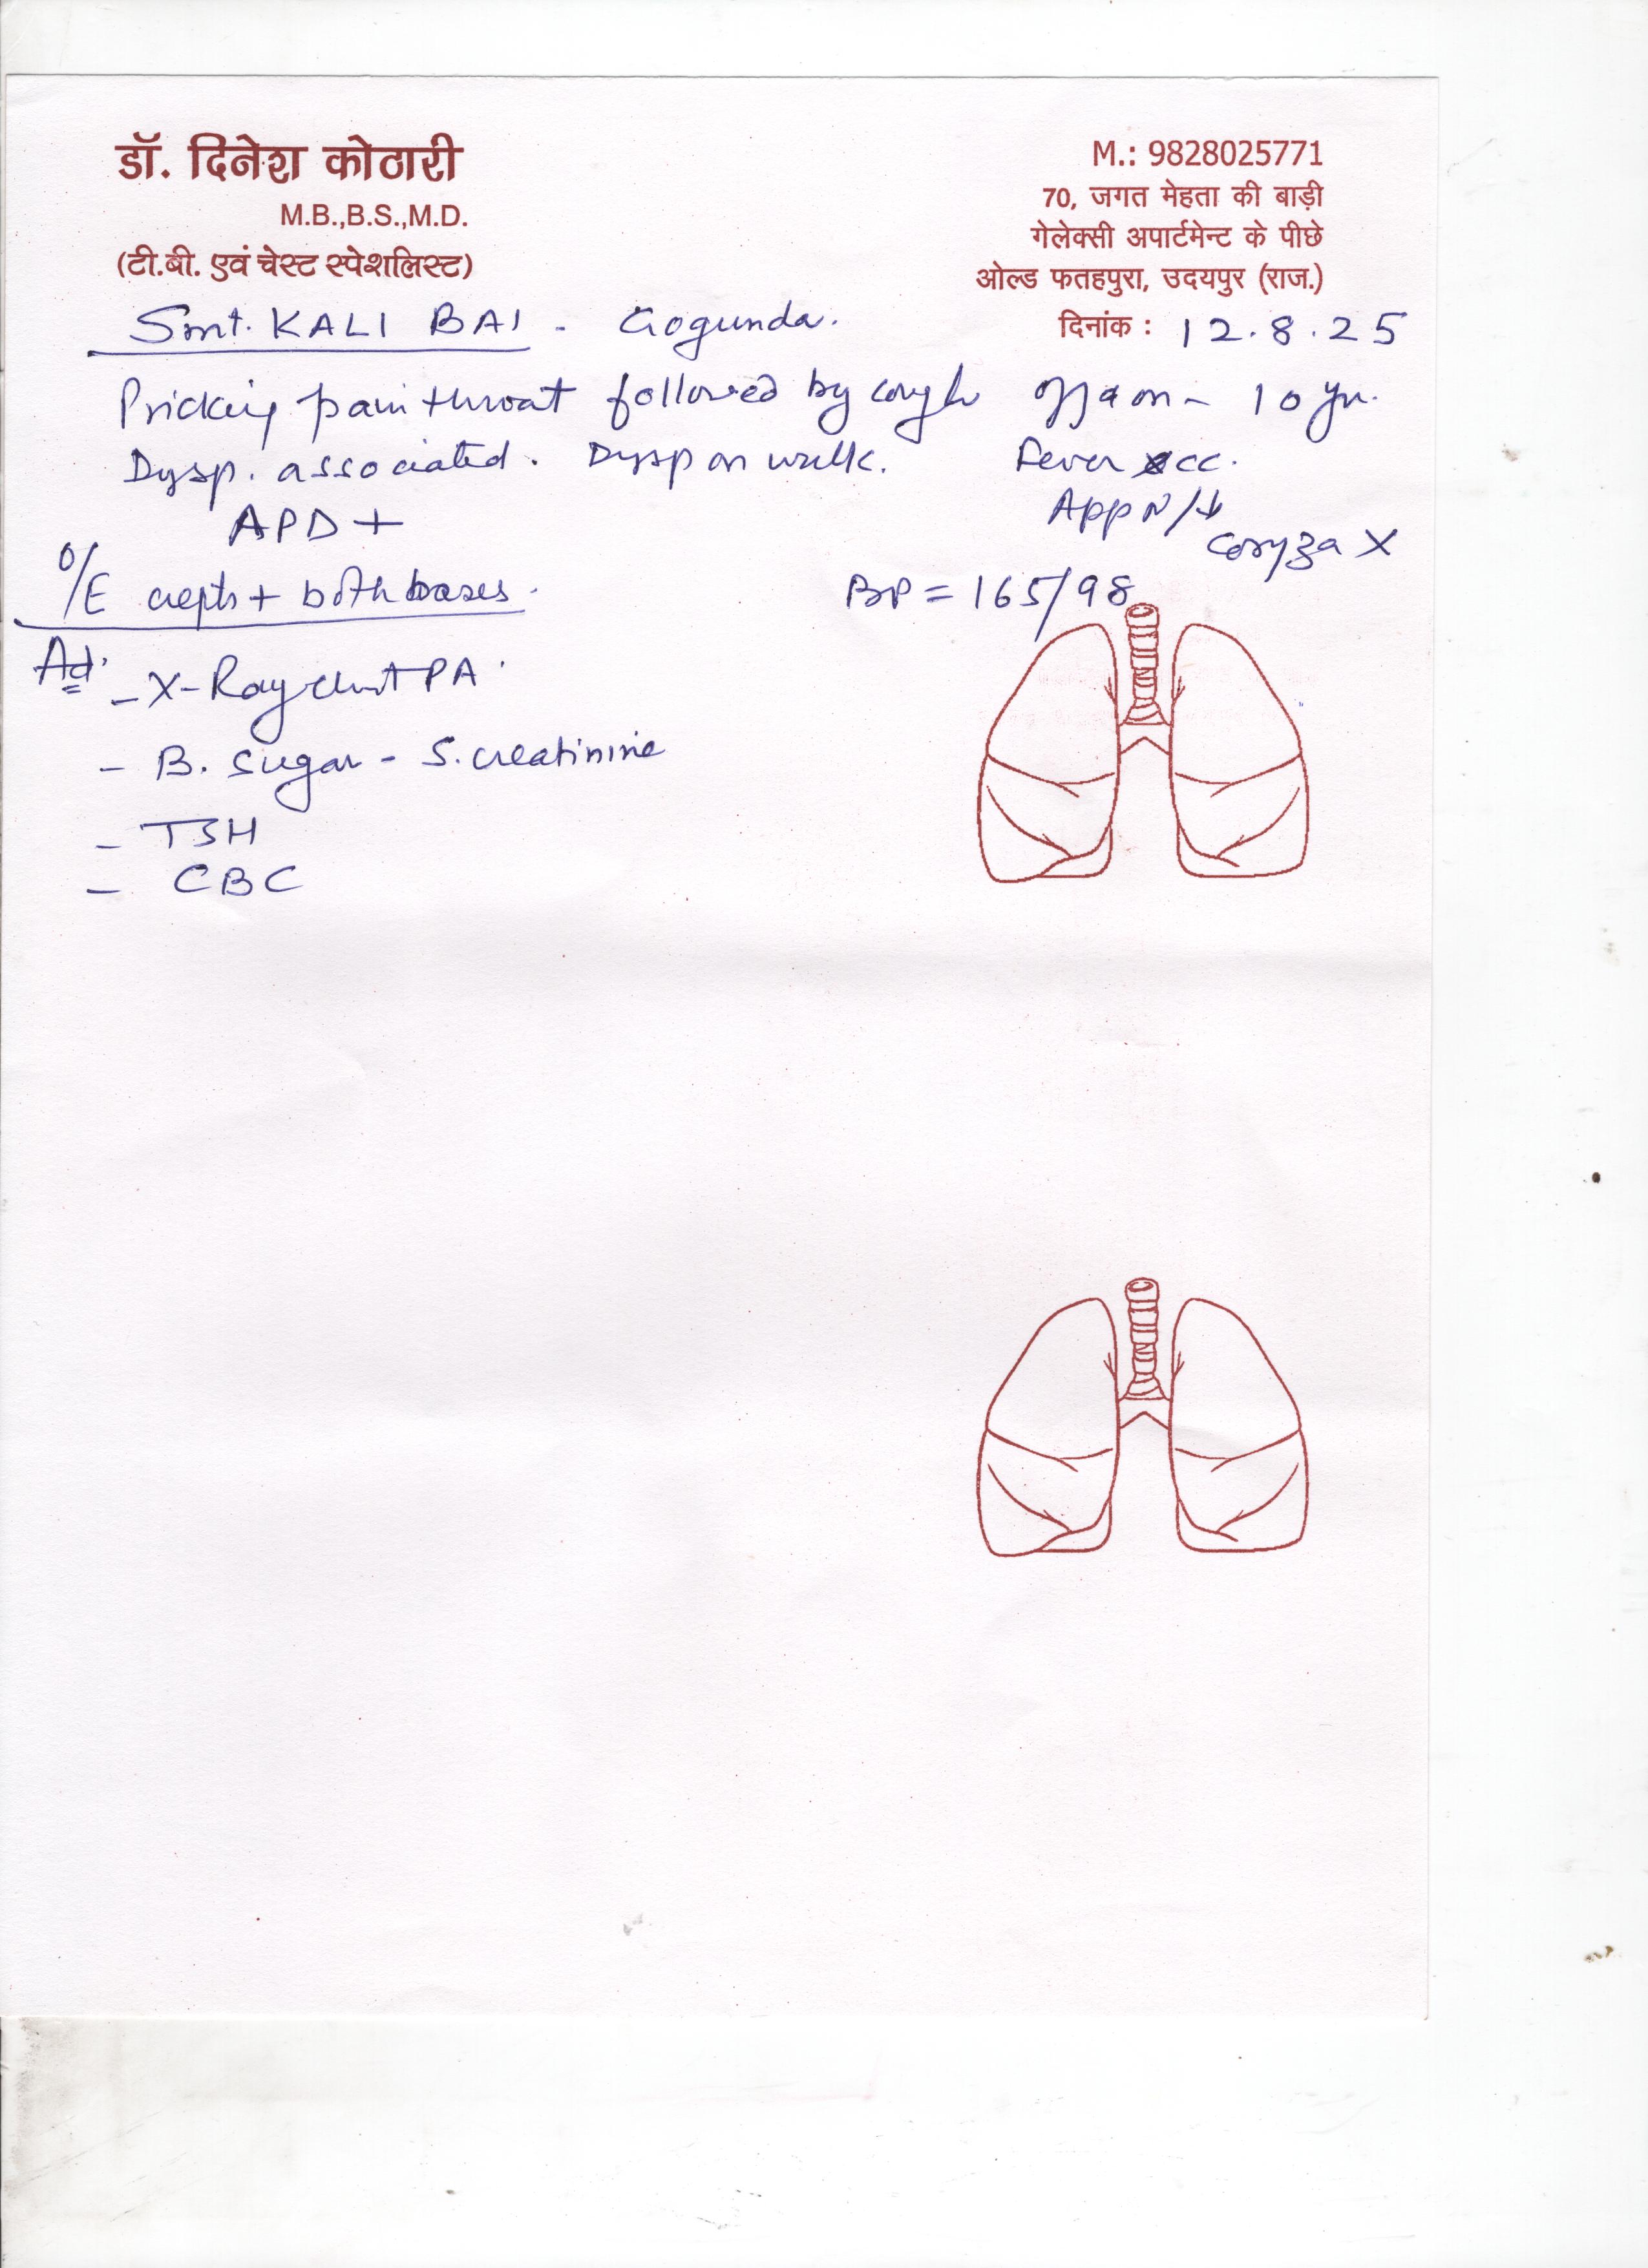 डॉ. दिनेश कोठारी
M.B.,B.S.,M.D.
(टी.बी. एवं चेस्ट स्पेशलिस्ट)
M.: 9828025771
70, जगत मेहता की बाड़ी
गेलेक्सी अपार्टमेन्ट के पीछे
ओल्ड फतहपुरा, उदयपुर (राज.)
दिनांक : 12.8.25
Smt. KALI BAI - Gogunda.
Pricking pain throat followed by cough off & on - 10 yr.
Dysp. associated. Dysp on walk. Fever occ.
APD + App N/↓
Coryza X
O/E crepts + both bases. BP = 165/98
Ad.
- X-Ray chest PA.
- B. Sugar - S. creatinine
- TSH
- CBC